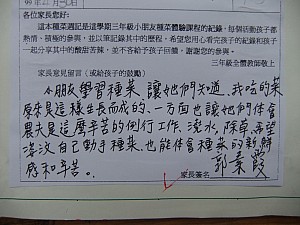 各位家長您好：
這本種菜週記是這學期三年級小朋友種菜體驗課程的紀錄，每個活動孩子都
熱情、積極的參與，並以筆記錄其中的歷程，希望您用心看完孩子的紀錄和孩子
一起分享其中的酸甜苦辣，並不吝給予孩子回饋，謝謝您的參與。
三年級全體教師敬上
家長意見留言（或給孩子的鼓勵）
小朋友學習種菜，讓她們知道，我吃的菜
原來是這樣生長而成的。一方面也讓她們体會
農夫是這麼辛苦的例行工作，澆水，除草，希望
自己動手種菜，也能体會種菜的新鮮
感和辛苦。
家長簽名
郭秦霞